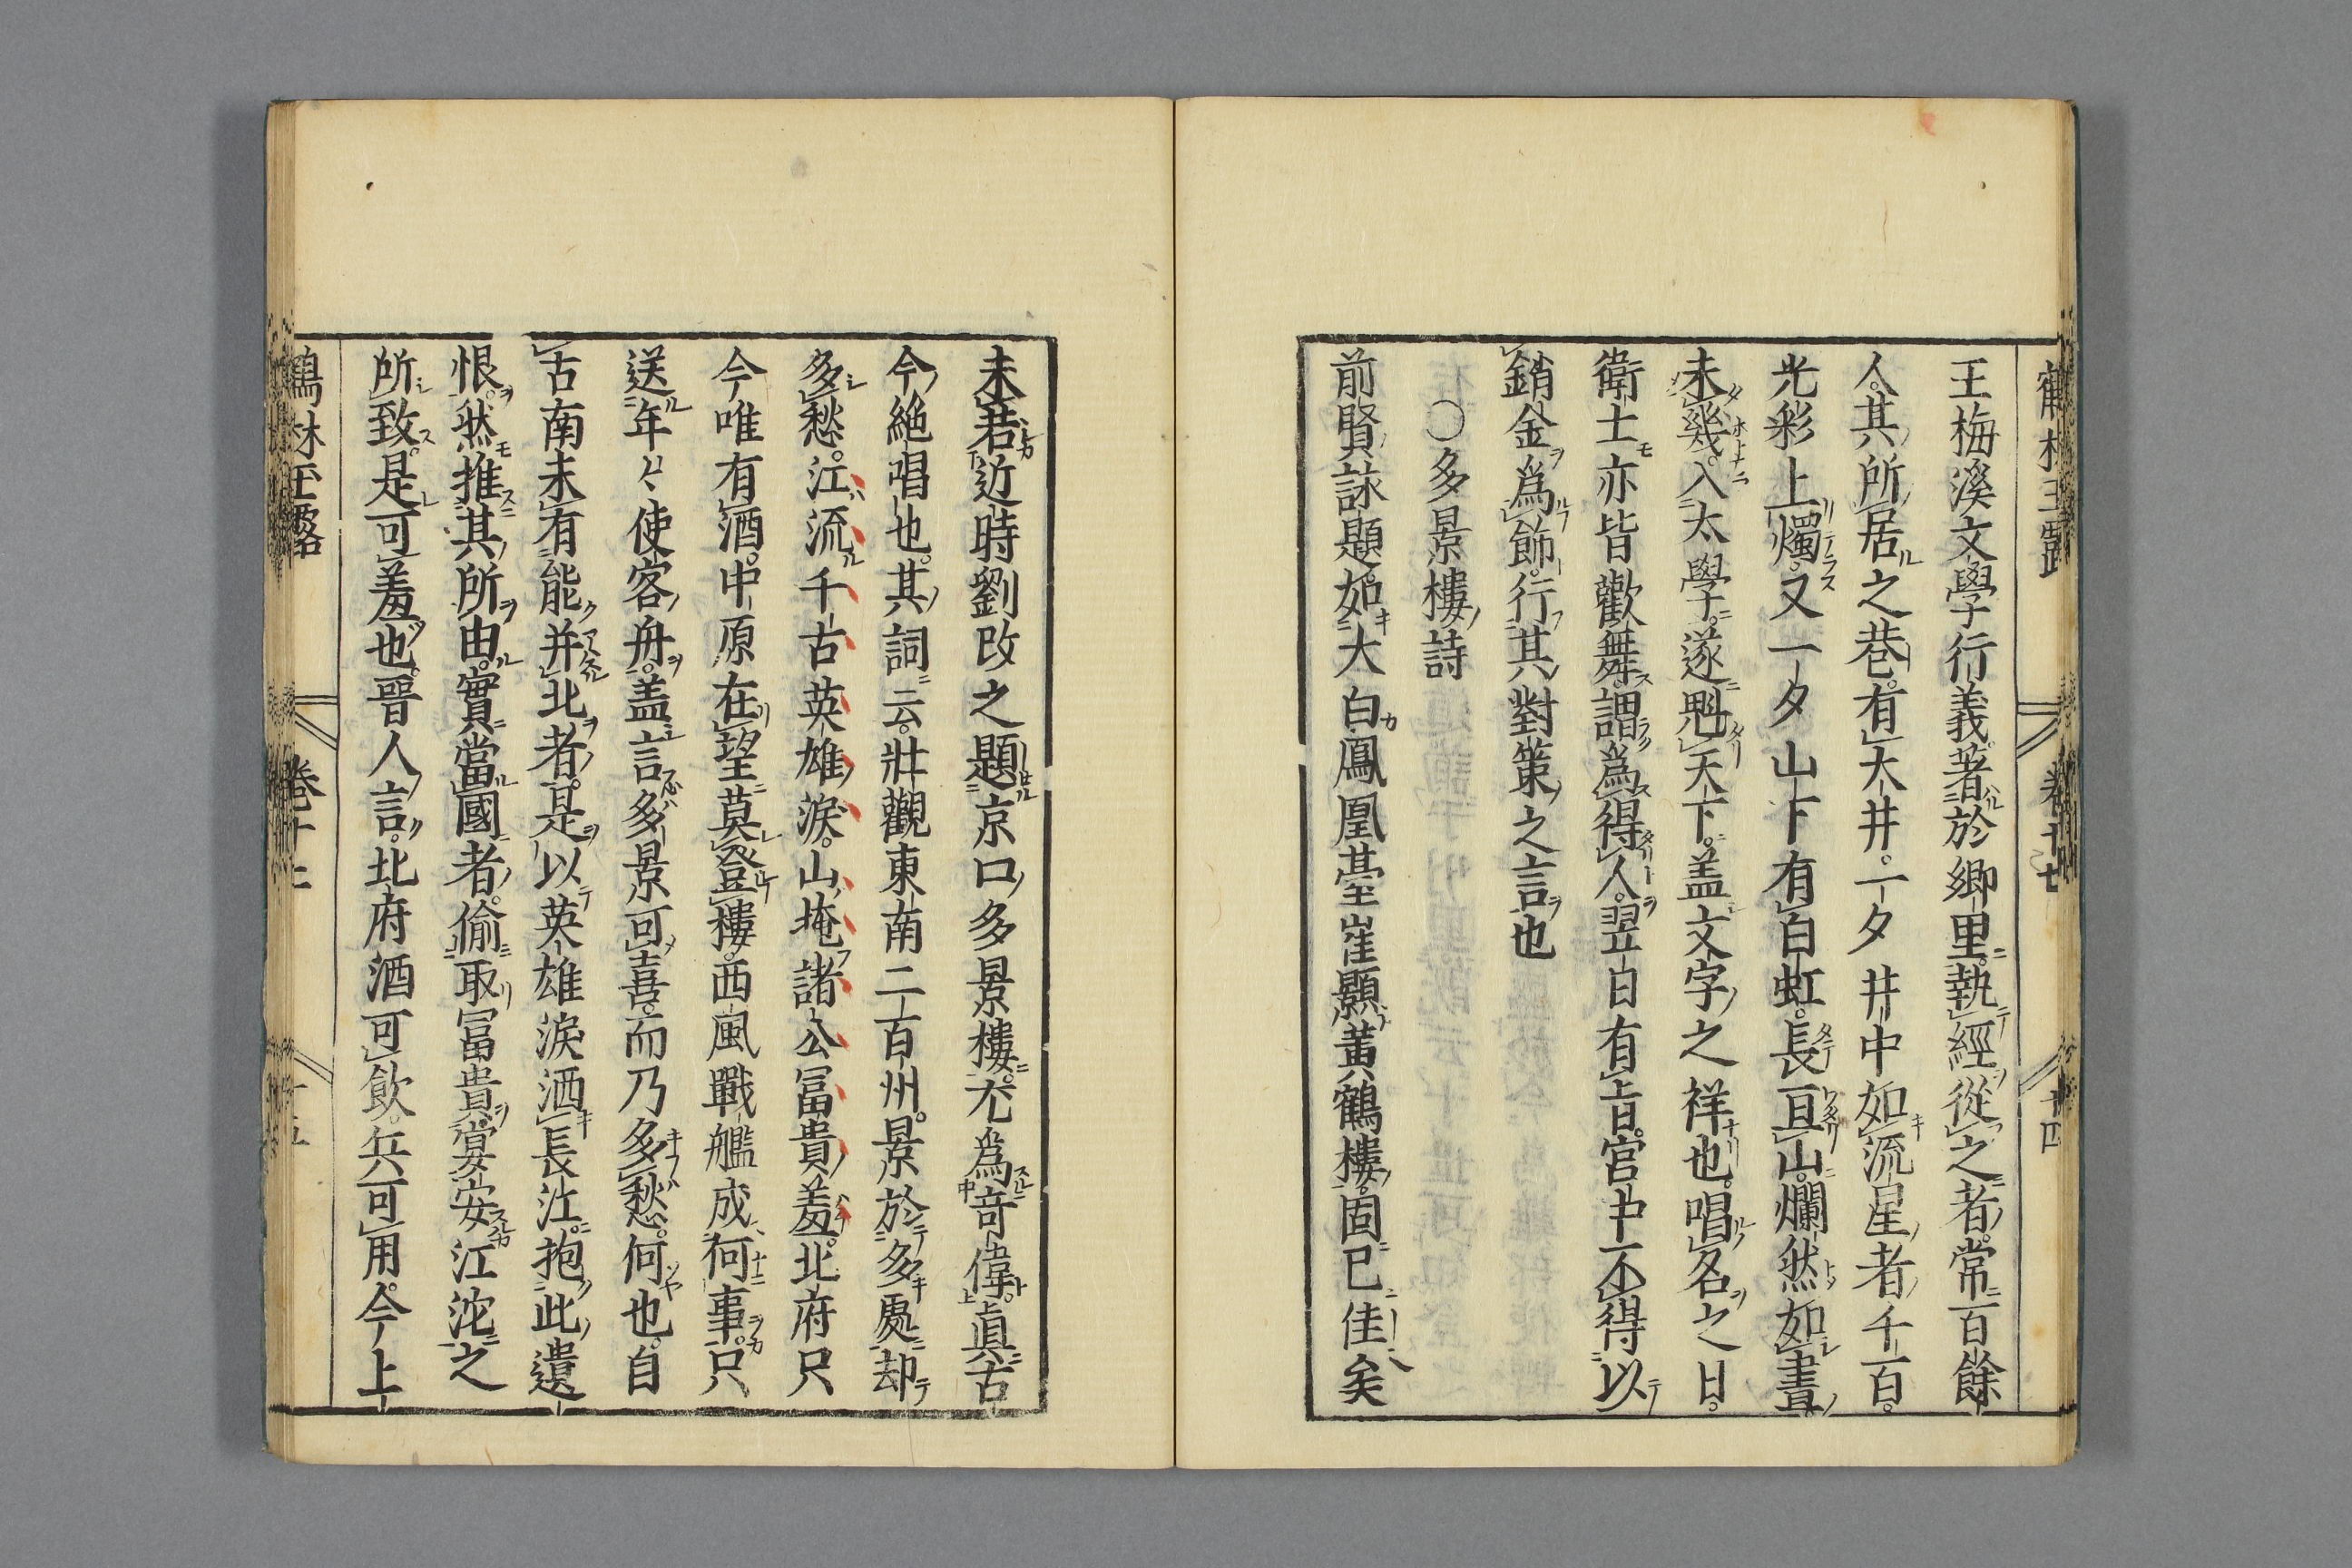 鶴林玉露 卷十七 十四
王梅溪文學行義著於鄉里執經從之者常百餘
人其所居之巷有大井一夕井中如流星者千百
光彩上燭又一夕山下有白虹長亘山爛然如晝
未幾入太學遂魁天下盖文字之祥也唱名之日
衛士亦皆歡舞謂爲得人翌日有旨宮中不得以
銷金爲飾行其對策之言也
○多景樓詩
前賢詠題如太白鳳凰臺崔顥黃鶴樓固已佳矣
未若近時劉改之題京口多景樓尤爲竒偉真古
今絶唱也其詞云壯觀東南二百州景於多處却
多愁江流千古英雄淚山掩諸公冨貴羞北府只
今唯有酒中原在望莫登樓西風戰艦成何事只
送年〻使客舟盖言多景可喜而乃多愁何也自
古南未有能并北者是以英雄淚洒長江抱此遺
恨然推其所由實當國者偷取冨貴宴安江沱之
所致是可羞也晉人言北府酒可飲兵可用今上
鶴林玉露 卷十七 十五